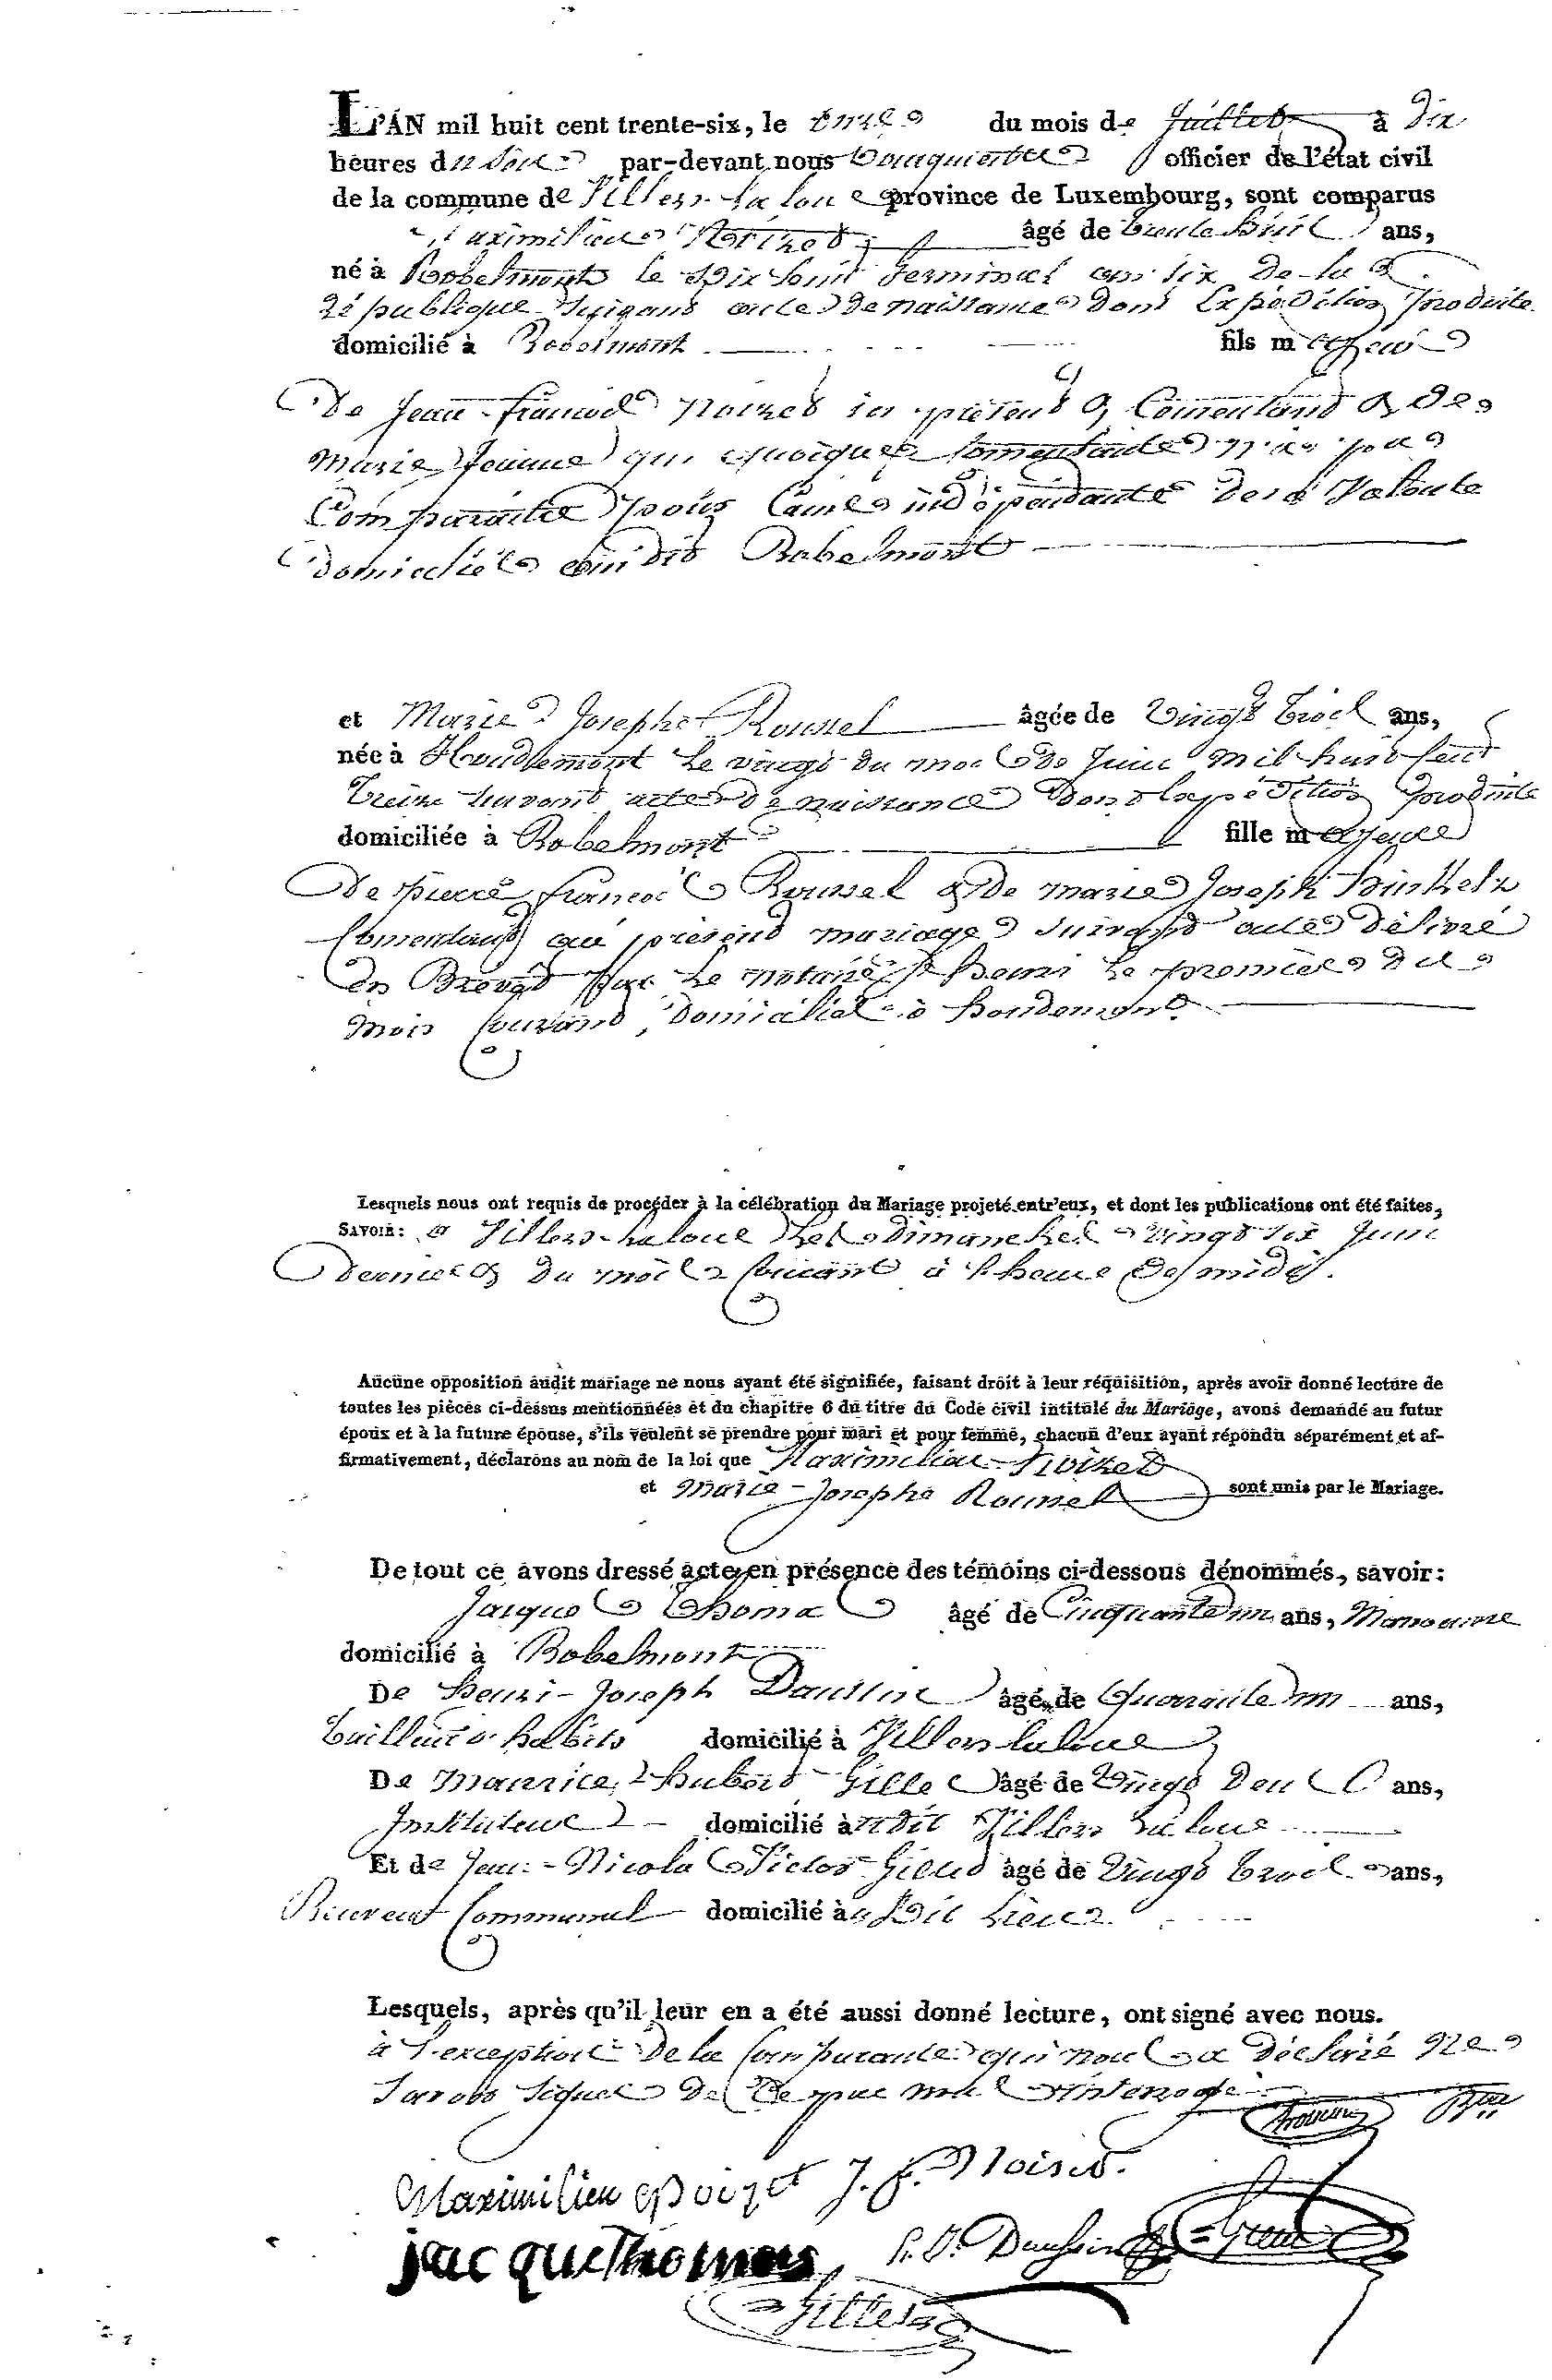 L'AN mil huit cent trente-six, le onze du mois de Juillet à dix
heures du soir par-devant nous officier de l'état civil
de la commune de Villers-la loue province de Luxembourg, sont comparus
Maximilien Noizet âgé de trente huit ans,
né à Robelmont le dix huit Germinal an six de la
République suivant acte de naissance dont Expédition produite
domicilié à Robelmont fils majeur
De Jean-francois Noizet ici présent & Consentant & de
Marie Jeanne qui quoique consentante n'a pu
Comparaitre pour Cause indépendante de sa Volonté
domiciliés audit Robelmont
et Marie Josephe Roussel âgée de Vingt trois ans,
née à Houdlemont le vingt du mois de Juin mil huit Cent
treize suivant acte de naissance dont l'expédition produite
domiciliée à Robelmont fille majeure
De Pierre francois Roussel & de marie Joseph
Consentant au présent mariage suivant acte délivré
en Brevet par le notaire henri le premier du
mois Courant, domiciliés à houdemont
Lesquels nous ont requis de procéder à la célébration du Mariage projeté entr'eux, et dont les publications ont été faites,
SAVOIR: à Villers-la loue les dimanches vingt six Juin
dernier & du mois Courant à l'heure de midi.
Aucune opposition audit mariage ne nous ayant été signifiée, faisant droit à leur réquisition, après avoir donné lecture de
toutes les pièces ci-dessus mentionnées et du chapitre 6 du titre du Code civil intitulé du Mariage, avons demandé au futur
époux et à la future épouse, s'ils veulent se prendre pour mari et pour femme, chacun d'eux ayant répondu séparément et af-
firmativement, déclarons au nom de la loi que Maximilien Noizet
et Marie-Josephe Roussel sont unis par le Mariage.
De tout ce avons dressé acte en présence des témoins ci-dessous dénommés, savoir:
Jacques Thomas âgé de Cinquante un ans, Manoeuvre
domicilié à Robelmont
De henri-Joseph Daussin âgé de Quarante un ans,
tailleur d'habits domicilié à Villers laloue
De Maurice hubert Gille âgé de Vingt Deux ans,
Instituteur domicilié audit Villers la loue
Et de Jean-Nicolas Victor Gieud âgé de Vingt trois ans,
Receveur Communal domicilié audit Lieu
Lesquels, après qu'il leur en a été aussi donné lecture, ont signé avec nous.
à l'exception de la Comparante qui nous a déclaré ne
savoir signer de ce par nous interrogé
Maximilien Noizet J. f. Noised.
jacque Thomas h. J. Daussin
Gilles